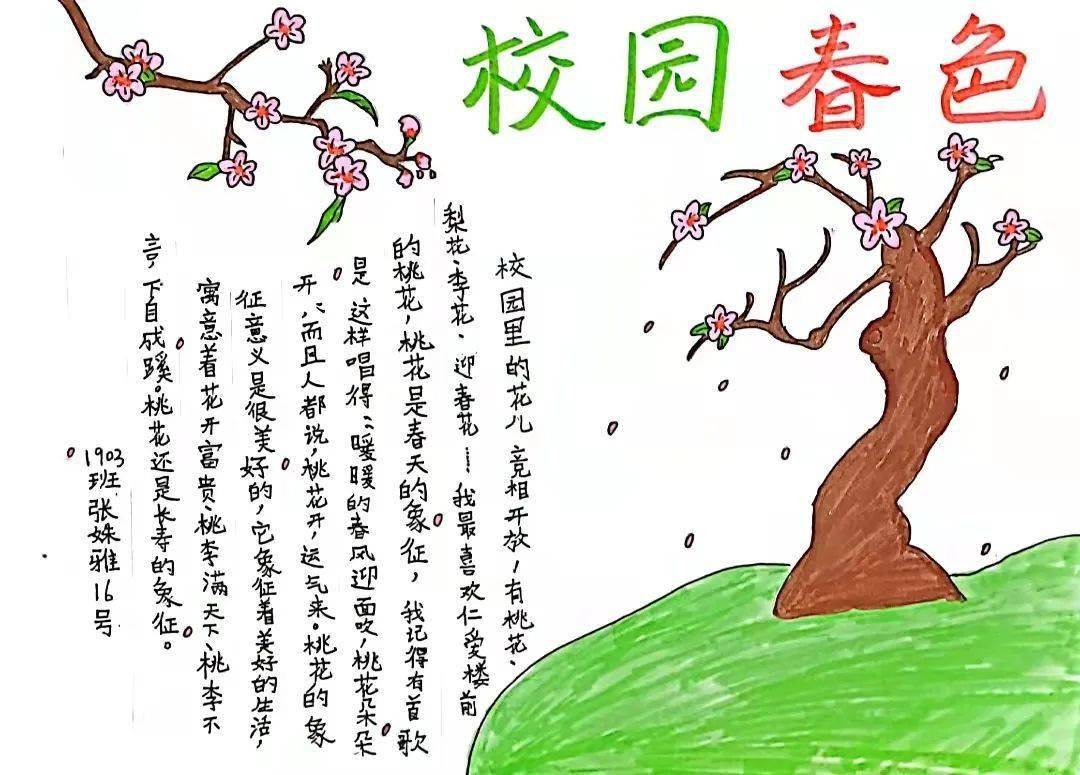 校园春色
校园里的花儿竞相开放，有桃花、
梨花、李花、迎春花……我最喜欢仁爱楼前
的桃花，桃花是春天的象征，我记得有首歌
是这样唱得：“暖暖的春风迎面吹，桃花朵朵
开”，而且人都说，桃花开，运气来。桃花的象
征意义是很美好的，它象征着美好的生活，
寓意着花开富贵、桃李满天下、桃李不
言，下自成蹊。桃花还是长寿的象征。
1903班张姝雅16号